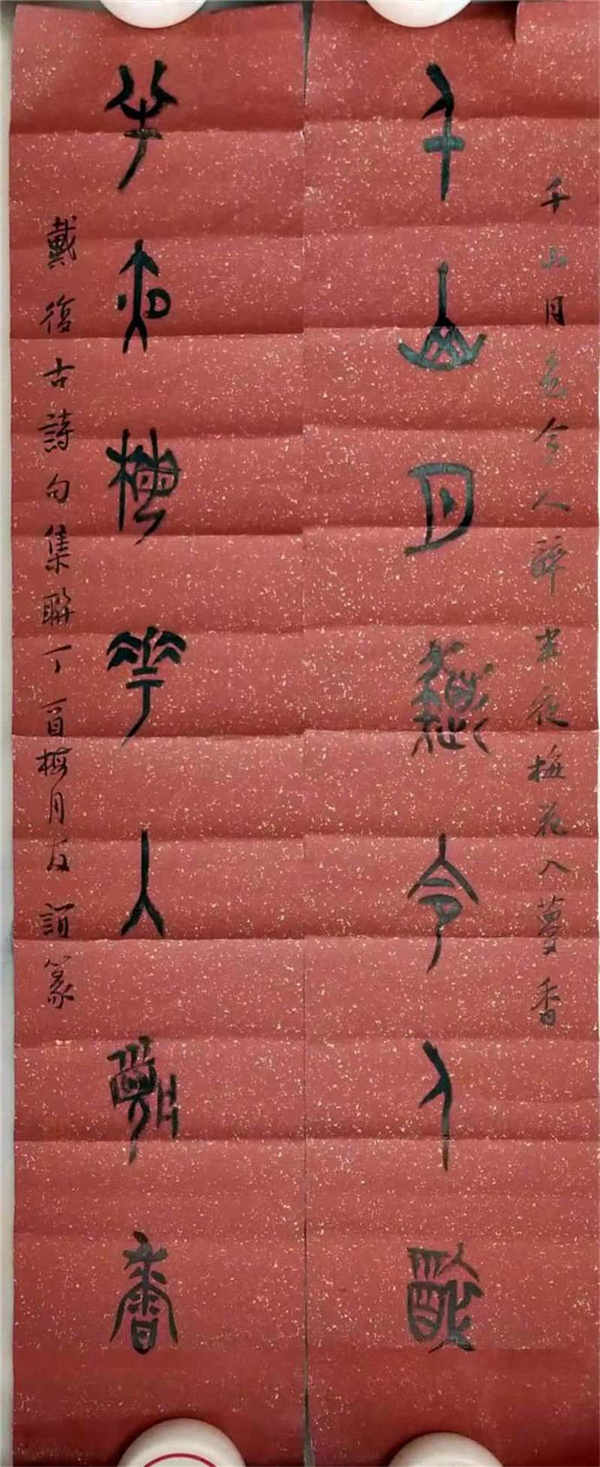 千山月色令人醉半夜梅花入夢香
千山月色令人醉
半夜梅花入夢香
戴復古詩句集聯丁酉梅月篆